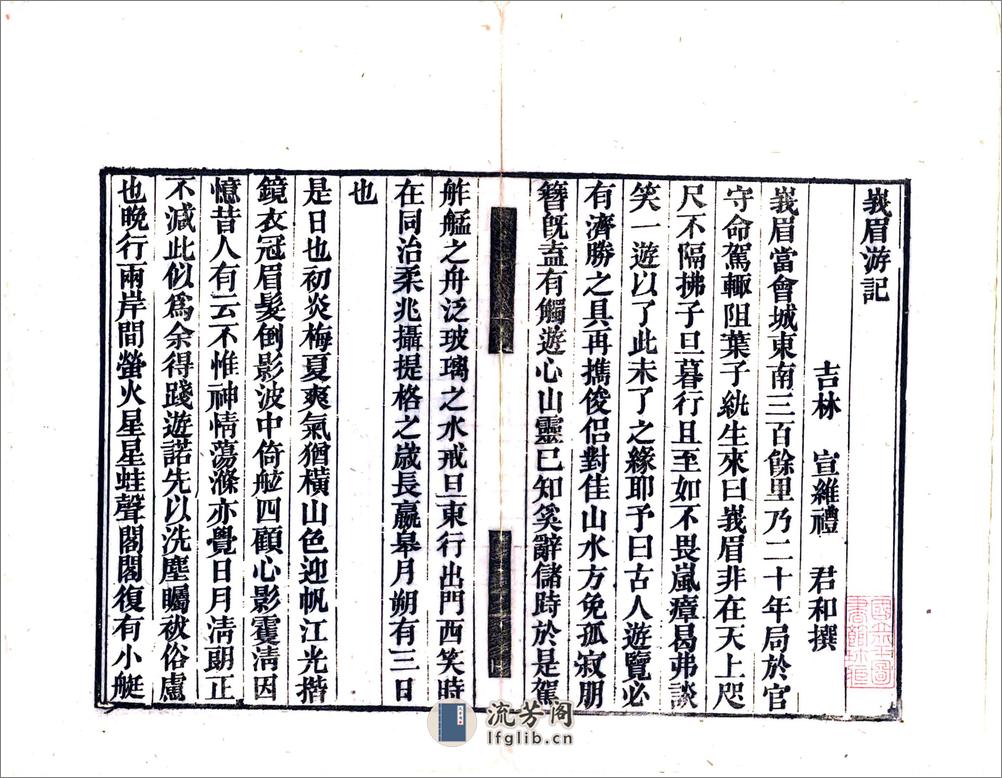 峩眉游記
吉林　宣維禮　君和撰
峩眉當會城東南三百餘里乃二十年局於官
守命駕輙阻葉子絖生來曰峩眉非在天上咫
尺不隔拂子旦暮行且至如不畏嵐瘴曷弗談
笑一遊以了此未了之緣耶予曰古人遊覽必
有濟勝之具再擕俊侣對佳山水方免孤寂朋
簪旣盍有觸遊心山靈已知奚辭儲時於是駕
舴艋之舟泛玻璃之水戒旦東行出門西笑時
在同治柔兆攝提格之歲長嬴皋月朔有三日
也
是日也初炎梅夏爽氣猶橫山色迎帆江光揩
鏡衣冠眉髮倒影波中倚舷四顧心影霎清因
憶昔人有云不惟神情蕩滌亦覺日月淸朗正
不減此似爲余得踐遊諾先以洗塵矚袚俗慮
也晚行兩岸間螢火星星蛙聲閣閣復有小艇
流芳阁
lfglib.cn